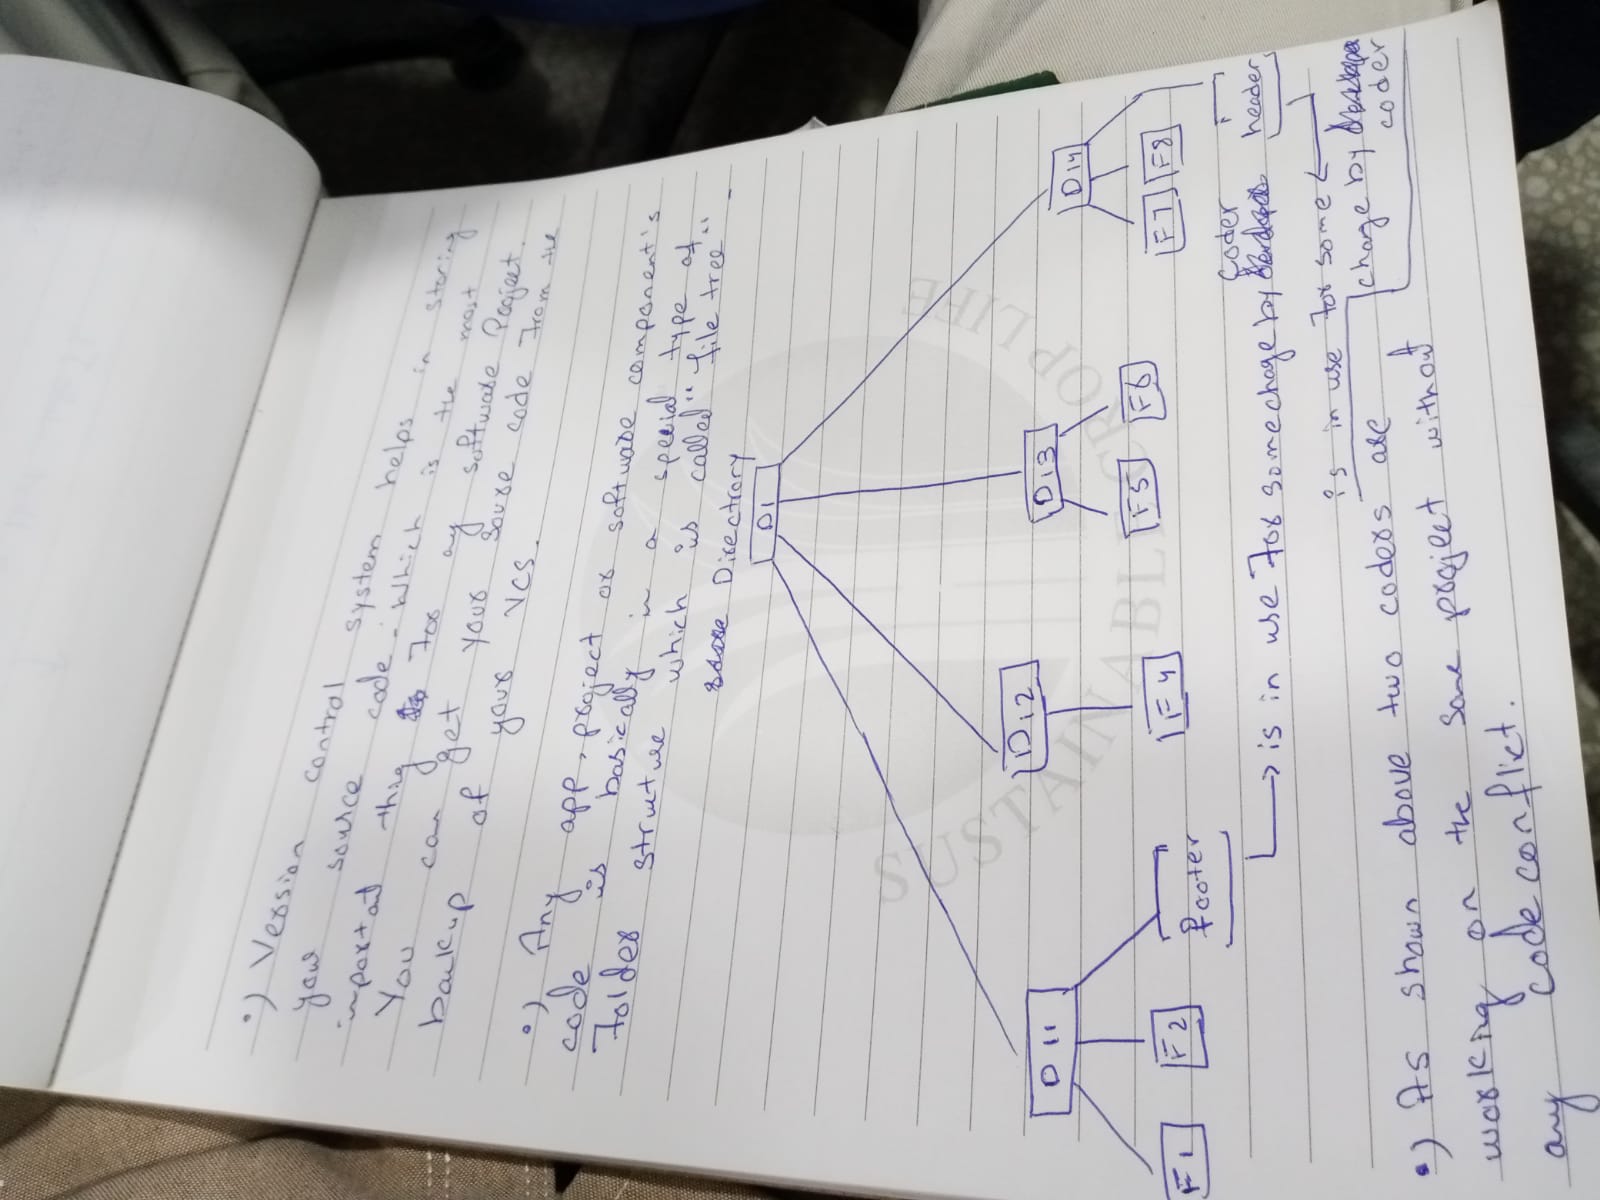 •) Version control system helps in storing
your source code. Which is the most
important thing for any software Project.
You can get your source code from the
backup of your VCS.
•) Any app, project or software component's
code is basically in a special type of
folder struture which is called "file tree"
Directrory
D1
D11 D12 D13 D14
F1 F2 footer F4 F5 F6 F7 F8 header
coder
is in use for some change by
is in use for some
change by
coder
•) As shown above two coders are
working on the same project without
any code conflict.
SUSTAINABLE CROP LIFE